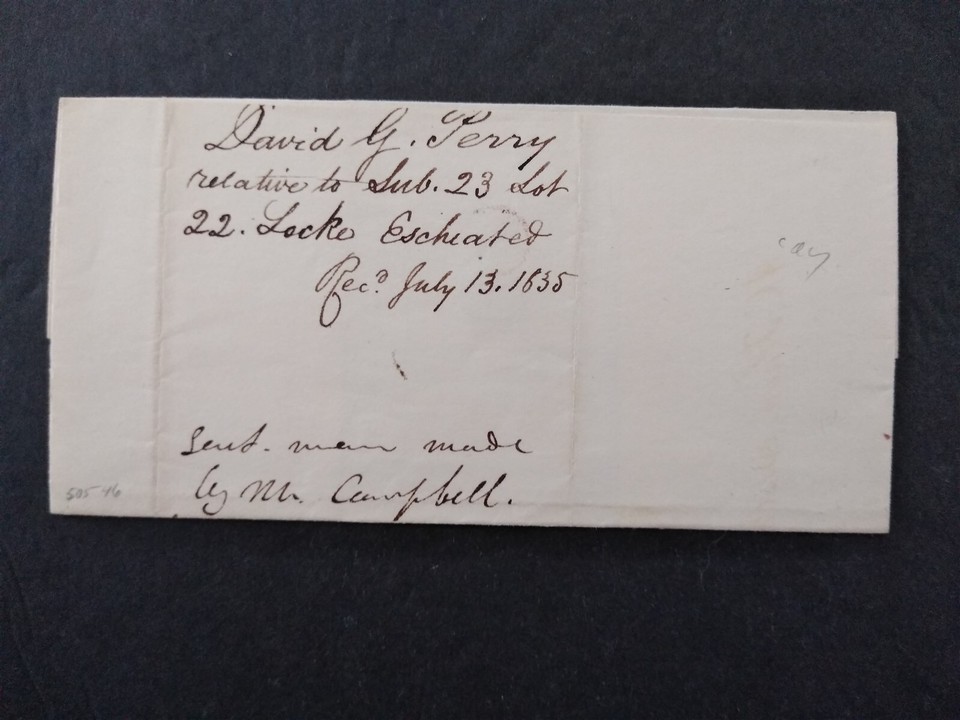 David G. Perry
relative to Sub. 23 Lot
22. Locke Escheated
Recd. July 13. 1835
sent. mem made
by Mr. Campbell.
505-16